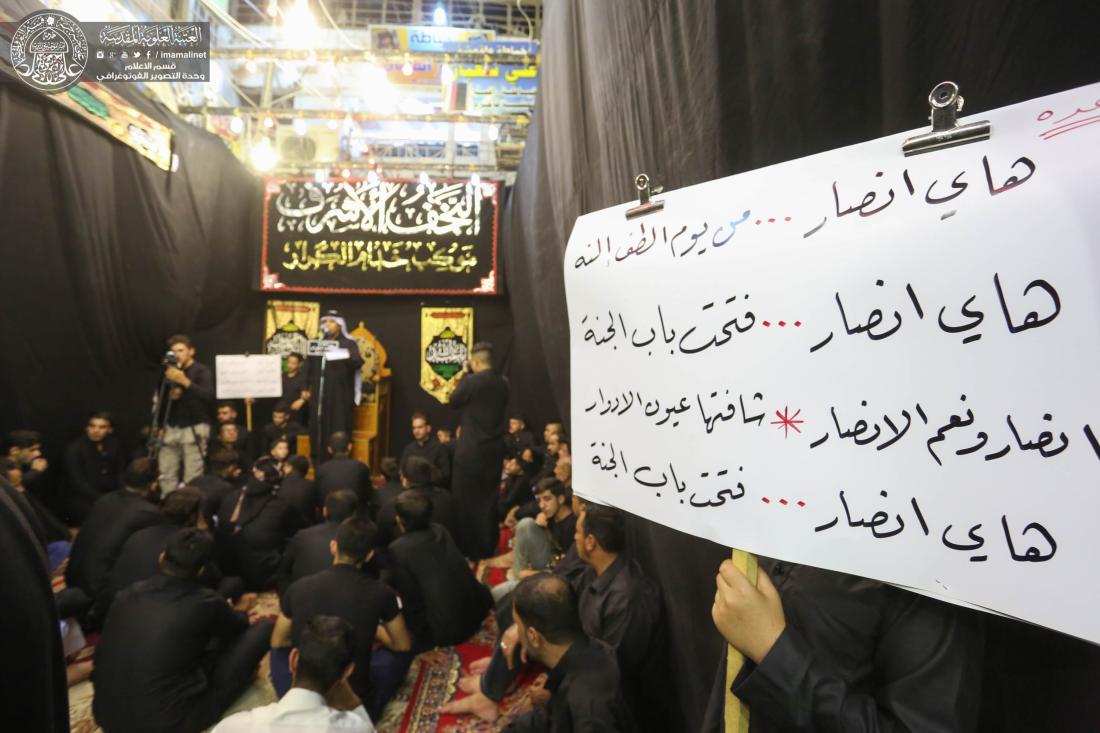 العتبة العلوية المقدسة
/ imamalinet
قسم الاعلام
وحدة التصوير الفوتوغرافي
النجف الاشرف
موكب خدام الكرار
هاي انصار ... من يوم الطف إلنه
هاي انصار ... فتحت باب الجنة
انصار ونعم الانصار * شافتها عيون الادوار
هاي انصار ... فتحت باب الجنة